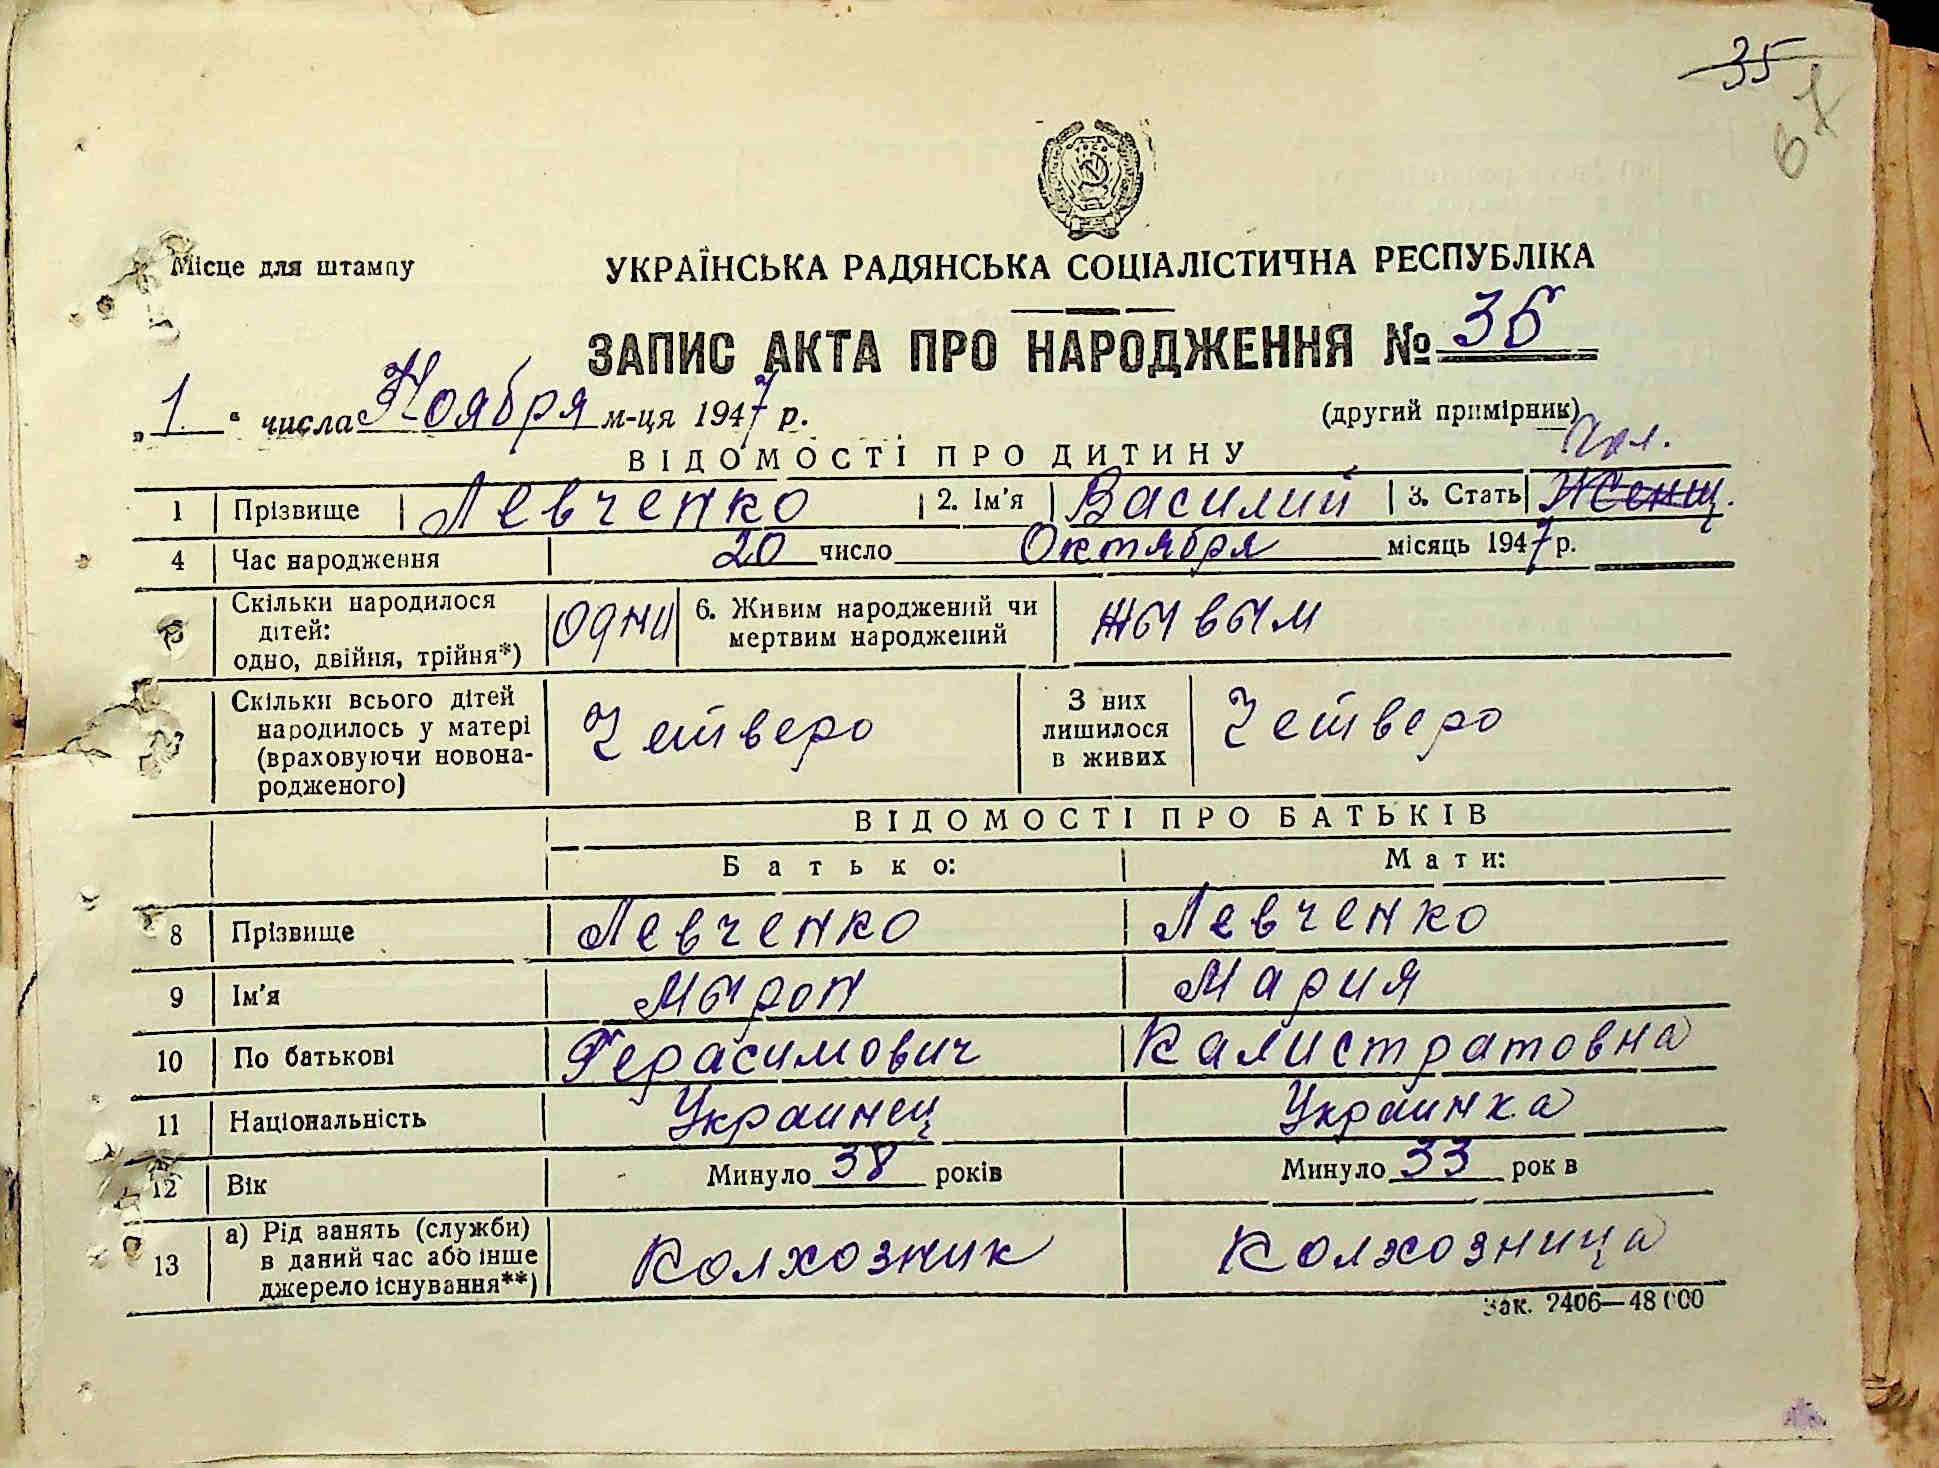 35
67
Місце для штампу
УКРАЇНСЬКА РАДЯНСЬКА СОЦІАЛІСТИЧНА РЕСПУБЛІКА
ЗАПИС АКТА ПРО НАРОДЖЕННЯ № 36
„1“ числа Ноября м-ця 1947 р.
(другий примірник)
ВІДОМОСТІ ПРО ДИТИНУ
Чол.
1 Прізвище Левченко 2. Ім'я Василий 3. Стать Женщ.
4 Час народження 20 число Октября місяць 1947 р.
Скільки народилося
дітей:
одно, двійня, трійня*)
одни
6. Живим народжений чи
мертвим народжений
жывым
Скільки всього дітей
народилось у матері
(враховуючи новона-
родженого)
Четверо
З них
лишилося
в живих
Четверо
ВІДОМОСТІ ПРО БАТЬКІВ
Батько: Мати:
8 Прізвище Левченко Левченко
9 Ім'я Мырон Мария
10 По батькові Герасимович Калистратовна
11 Національність Украинец Украинка
12 Вік Минуло 38 років Минуло 33 рок в
13 а) Рід занять (служби)
в даний час або інше
джерело існування**)
Колхозник Колхозница
Зак. 2406—48 000